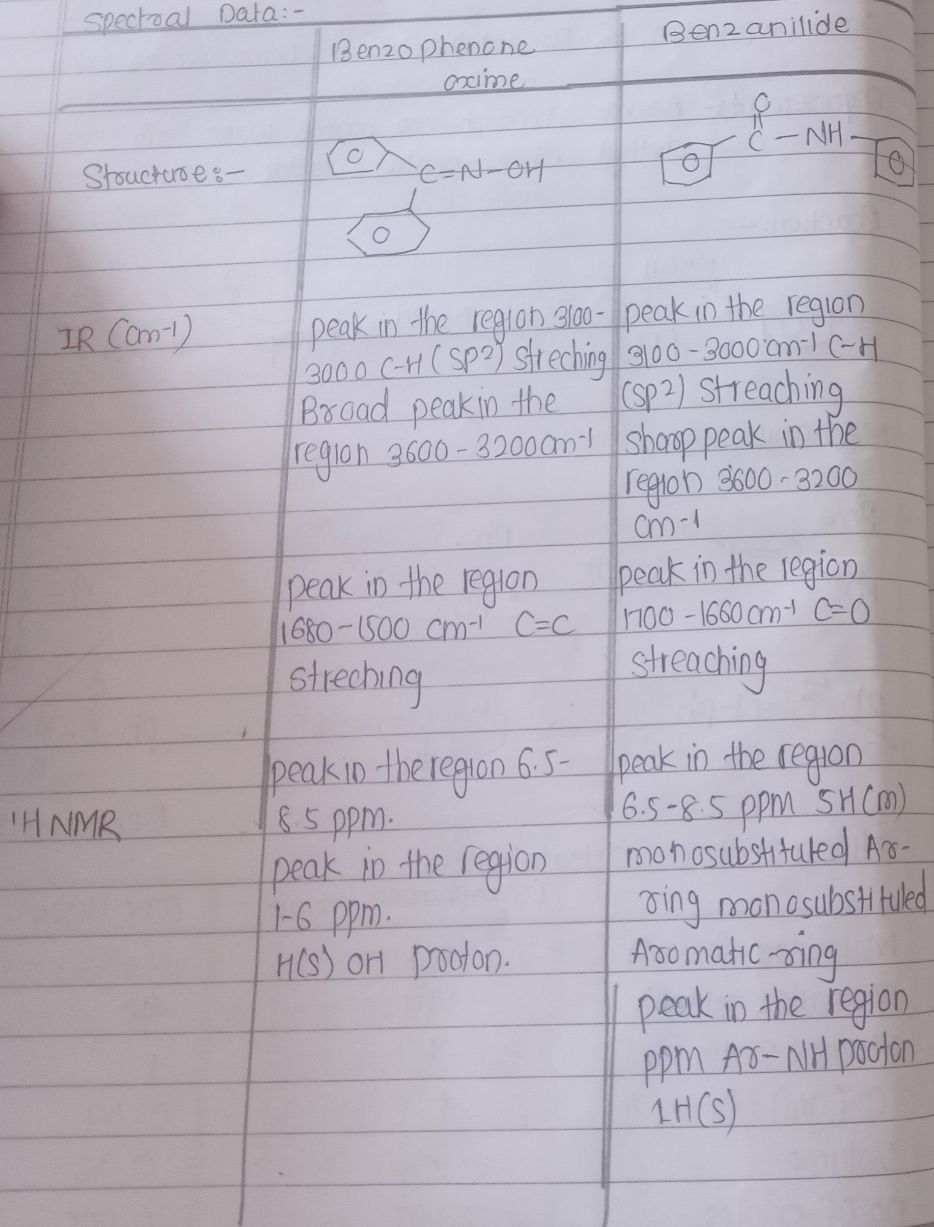 Spectral Data:-
Benzophenone
oxime
Benzanilide
Structure:-
C=N-OH
O
C-NH-
IR (cm-1)
peak in the region 3100-
3000 C-H (SP2) Streching
Broad peak in the
region 3600-3200cm-1
peak in the region
1680-1500 cm-1 C=C
streching
peak in the region
3100-3000cm-1 C-H
(SP2) streaching
sharp peak in the
region 3600-3200
cm-1
peak in the region
1700-1660cm-1 C=O
streaching
1H NMR
peak in the region 6.5-
8.5 ppm.
peak in the region
1-6 ppm.
H(S) OH proton.
peak in the region
6.5-8.5 ppm 5H(m)
monosubstituted Ar-
ring monosubstituled
Aromatic-ring
peak in the region
ppm Ar-NH proton
1H(S)